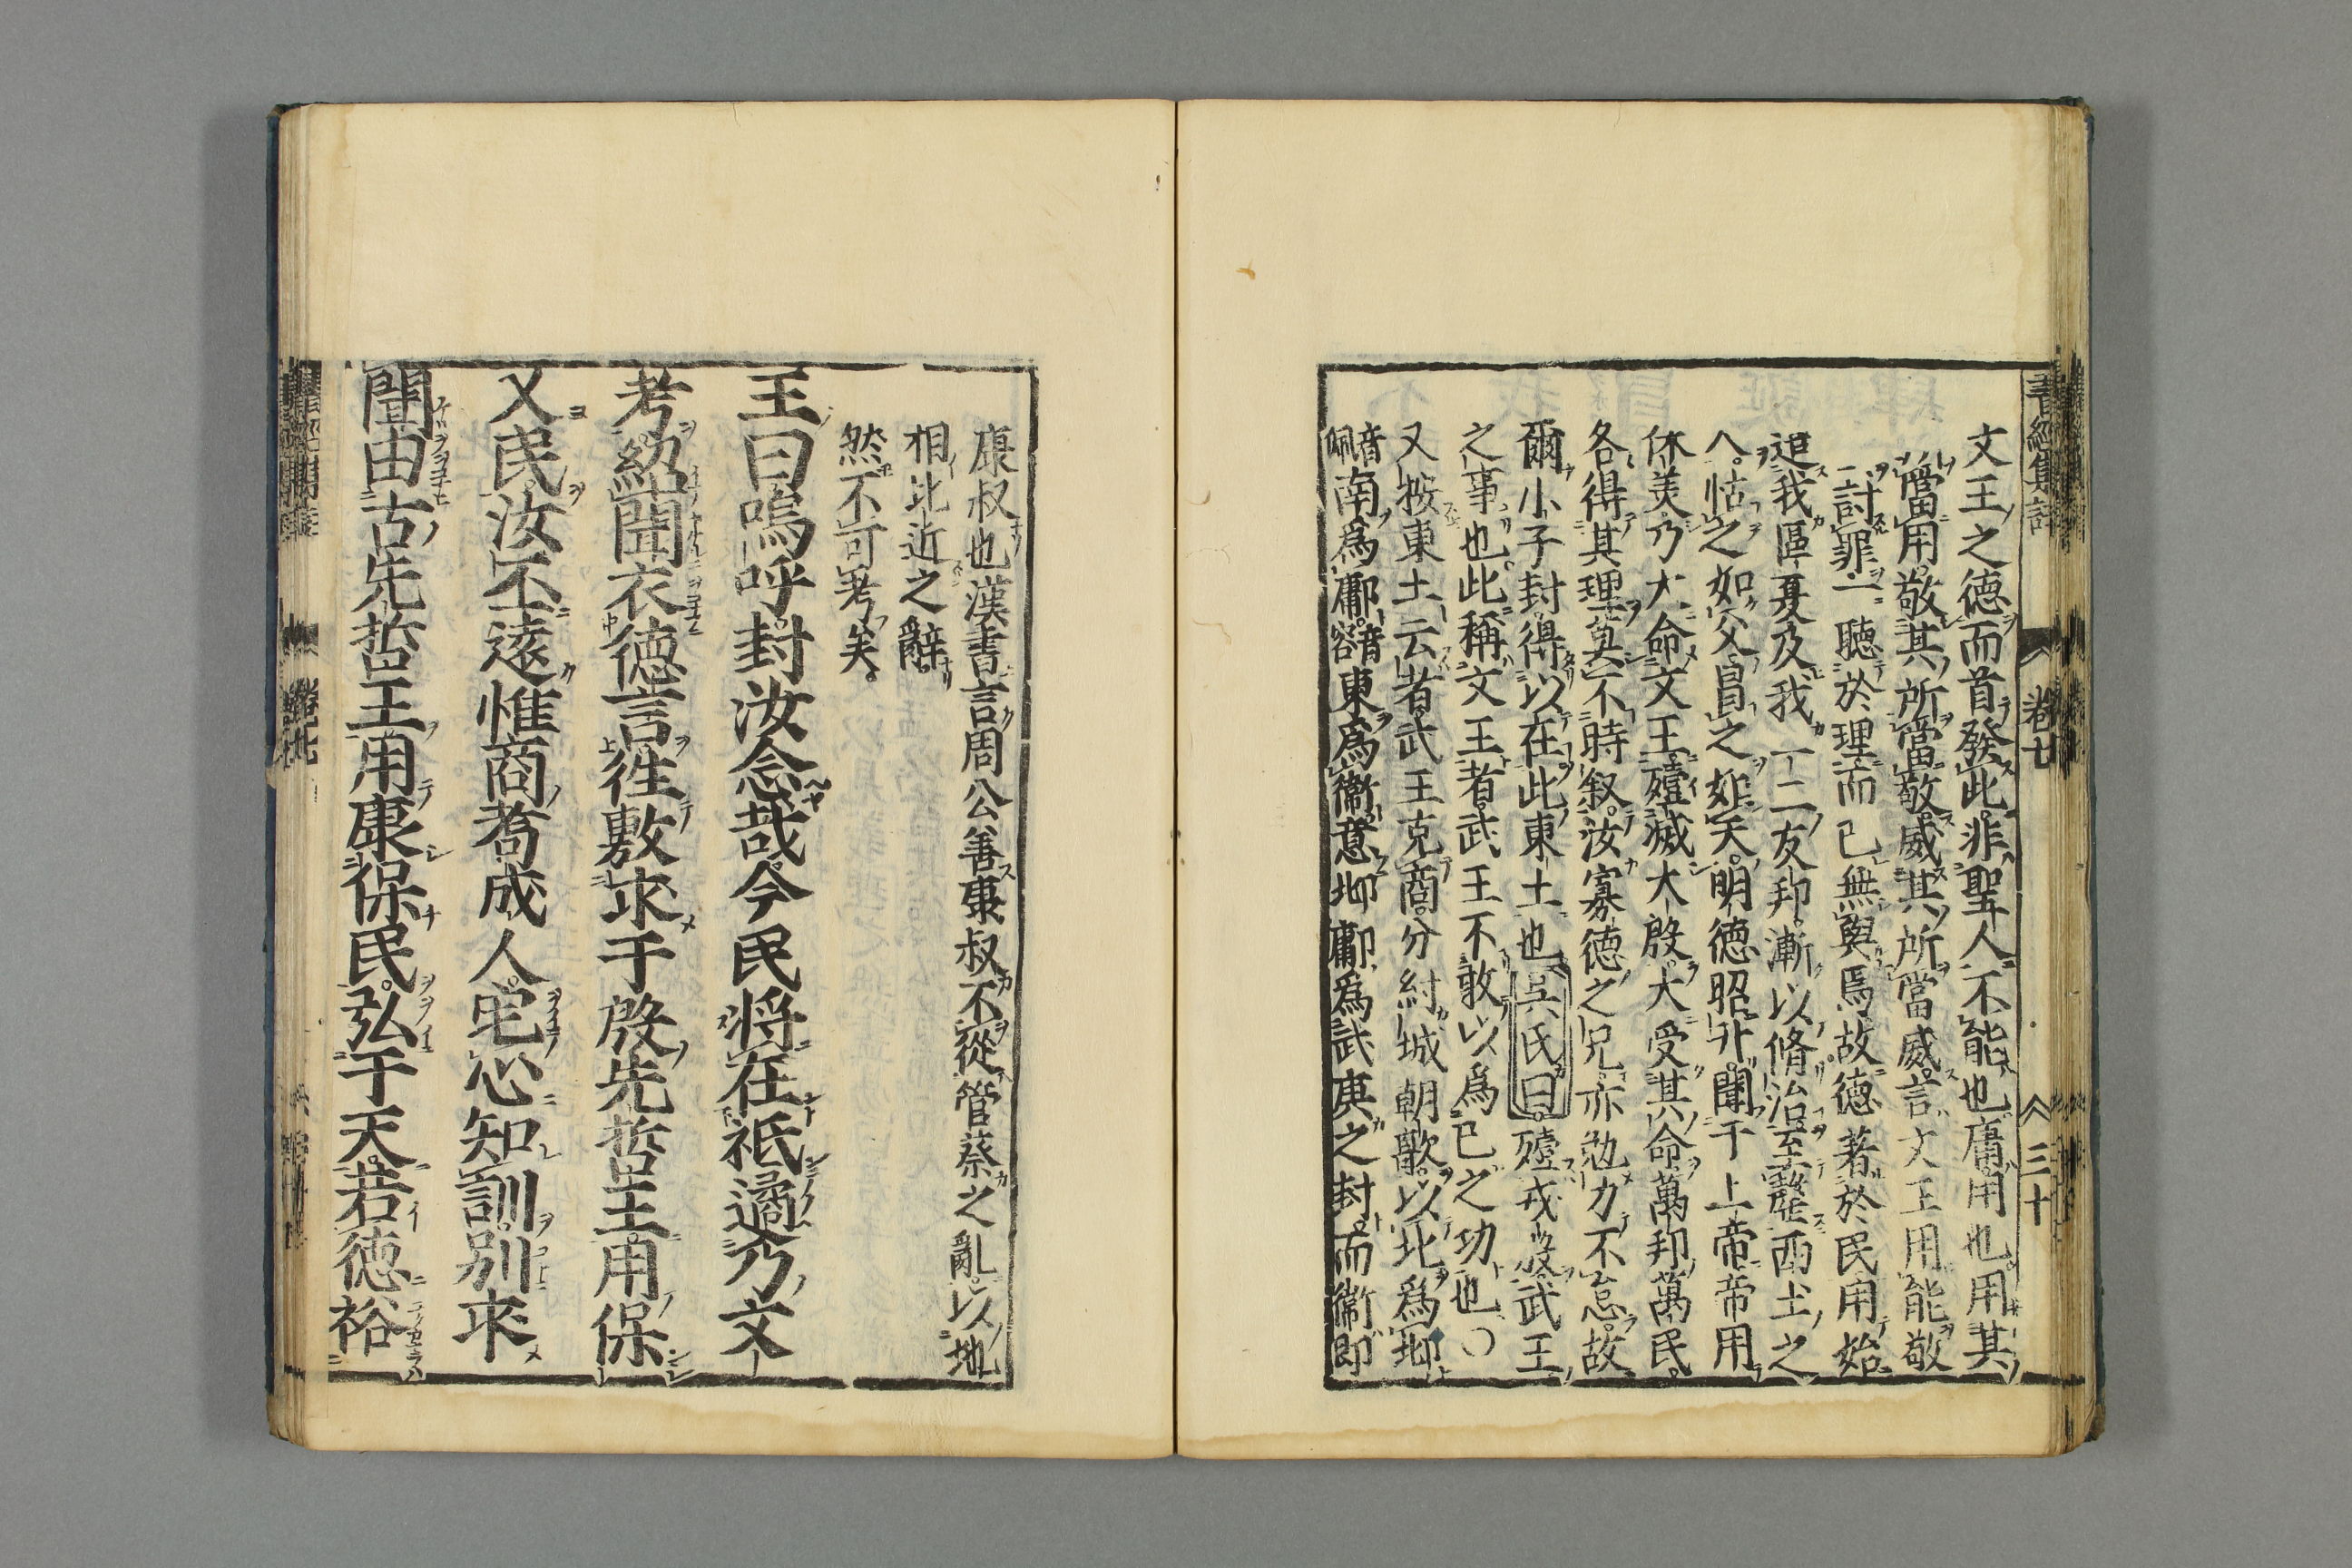 書經集註 卷七 三十
文王之德而首發此非聖人不能也庸用也用其
所當用敬其所當敬威其所當威言文王用能敬
討罪一聽於理而己無與焉故德著於民用始
造我區夏及我一二友邦漸以脩治至罄西土之
人怙之如父冒之如天明德昭升聞于上帝帝用
休美乃大命文王殪滅大殷大受其命萬邦萬民
各得其理莫不時叙汝寡德之兄亦勉力不怠故
爾小子封得以在此東土也吳氏曰殪戎殷武王
之事也此稱文王者武王不敢以爲已之功也○
又按東土云者武王克商分紂城朝歌以北爲邶
音佩南爲鄘音容東爲衞意邶鄘爲武庚之封而衞即
康叔也漢書言周公善康叔不從管蔡之亂以地
相比近之辭
然不可考矣
王曰嗚呼封汝念哉今民將在祗遹乃文
考紹聞衣德言往敷求于殷先哲王用保
乂民汝丕遠惟商耇成人宅心知訓別求
聞由古先哲王用康保民弘于天若德裕